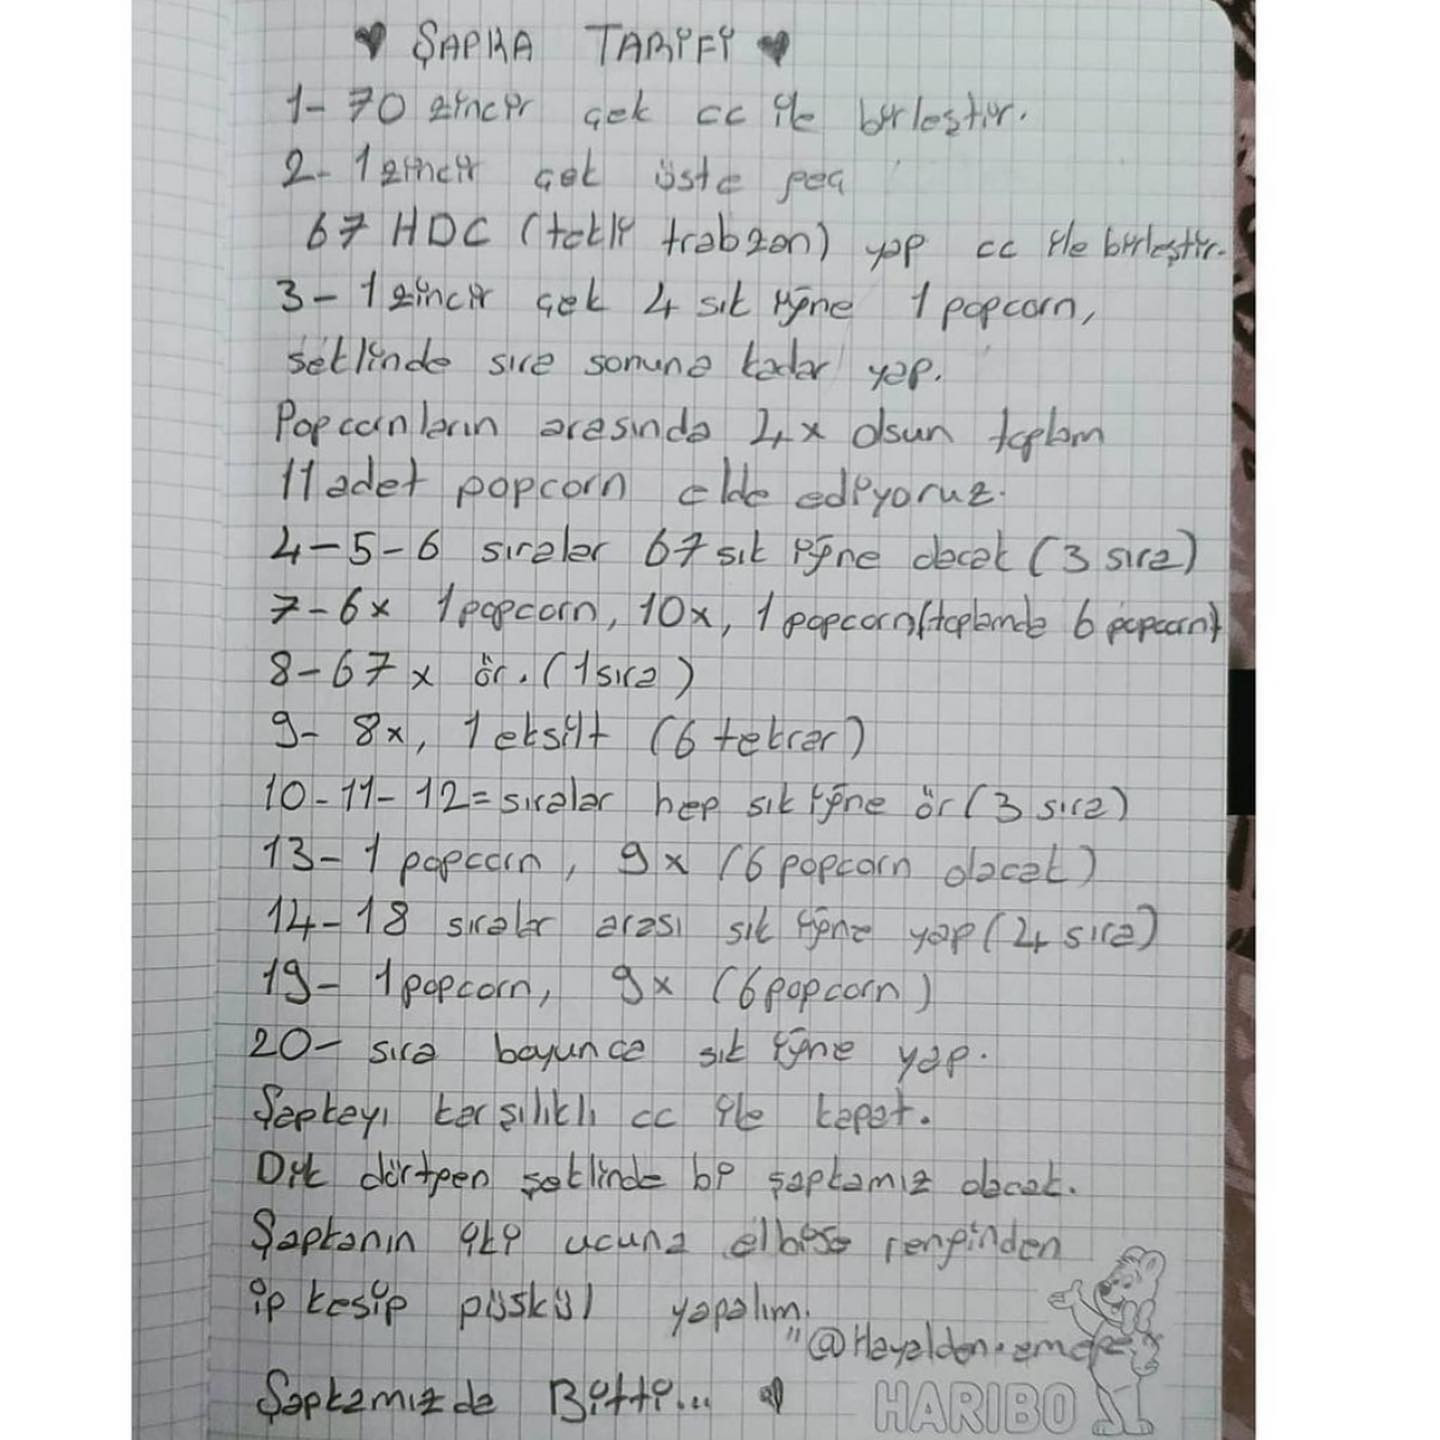 ♥ ŞAPKA TARİFİ ♥
1- 70 zincir çek cc ile birleştir.
2- 1 zincir çek üste geç
67 HDC (tekli trabzan) yap cc ile birleştir.
3- 1 zincir çek 4 sık iğne 1 popcorn,
şeklinde sıra sonuna kadar yap.
Popcornların arasında 4x olsun toplam
11 adet popcorn elde ediyoruz.
4-5-6 sıralar 67 sık iğne olacak (3 sıra)
7-6x 1 popcorn, 10x, 1 popcorn (toplamda 6 popcorn)
8-67x ör. (1 sıra)
9- 8x, 1 eksilt (6 tekrar)
10-11-12= sıralar hep sık iğne ör (3 sıra)
13- 1 popcorn, 9x (6 popcorn olacak)
14-18 sıralar arası sık iğne yap (4 sıra)
19- 1 popcorn, 9x (6 popcorn)
20- sıra boyunca sık iğne yap.
Şapkayı karşılıklı cc ile kapat.
Dik dörtgen şeklinde bi şapkamız olacak.
Şapkanın iki ucuna elbise renginden
ip kesip püskül yapalım.
"@Hayalden.emeğe
Şapkamızda Bitti... ♥
HARIBO